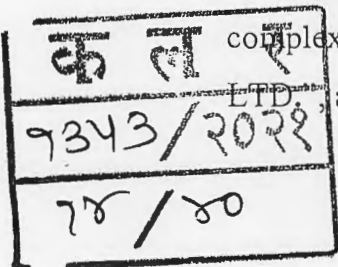 क ल र
complex
LTD.", a
१३५३/२०२१
१४/४०